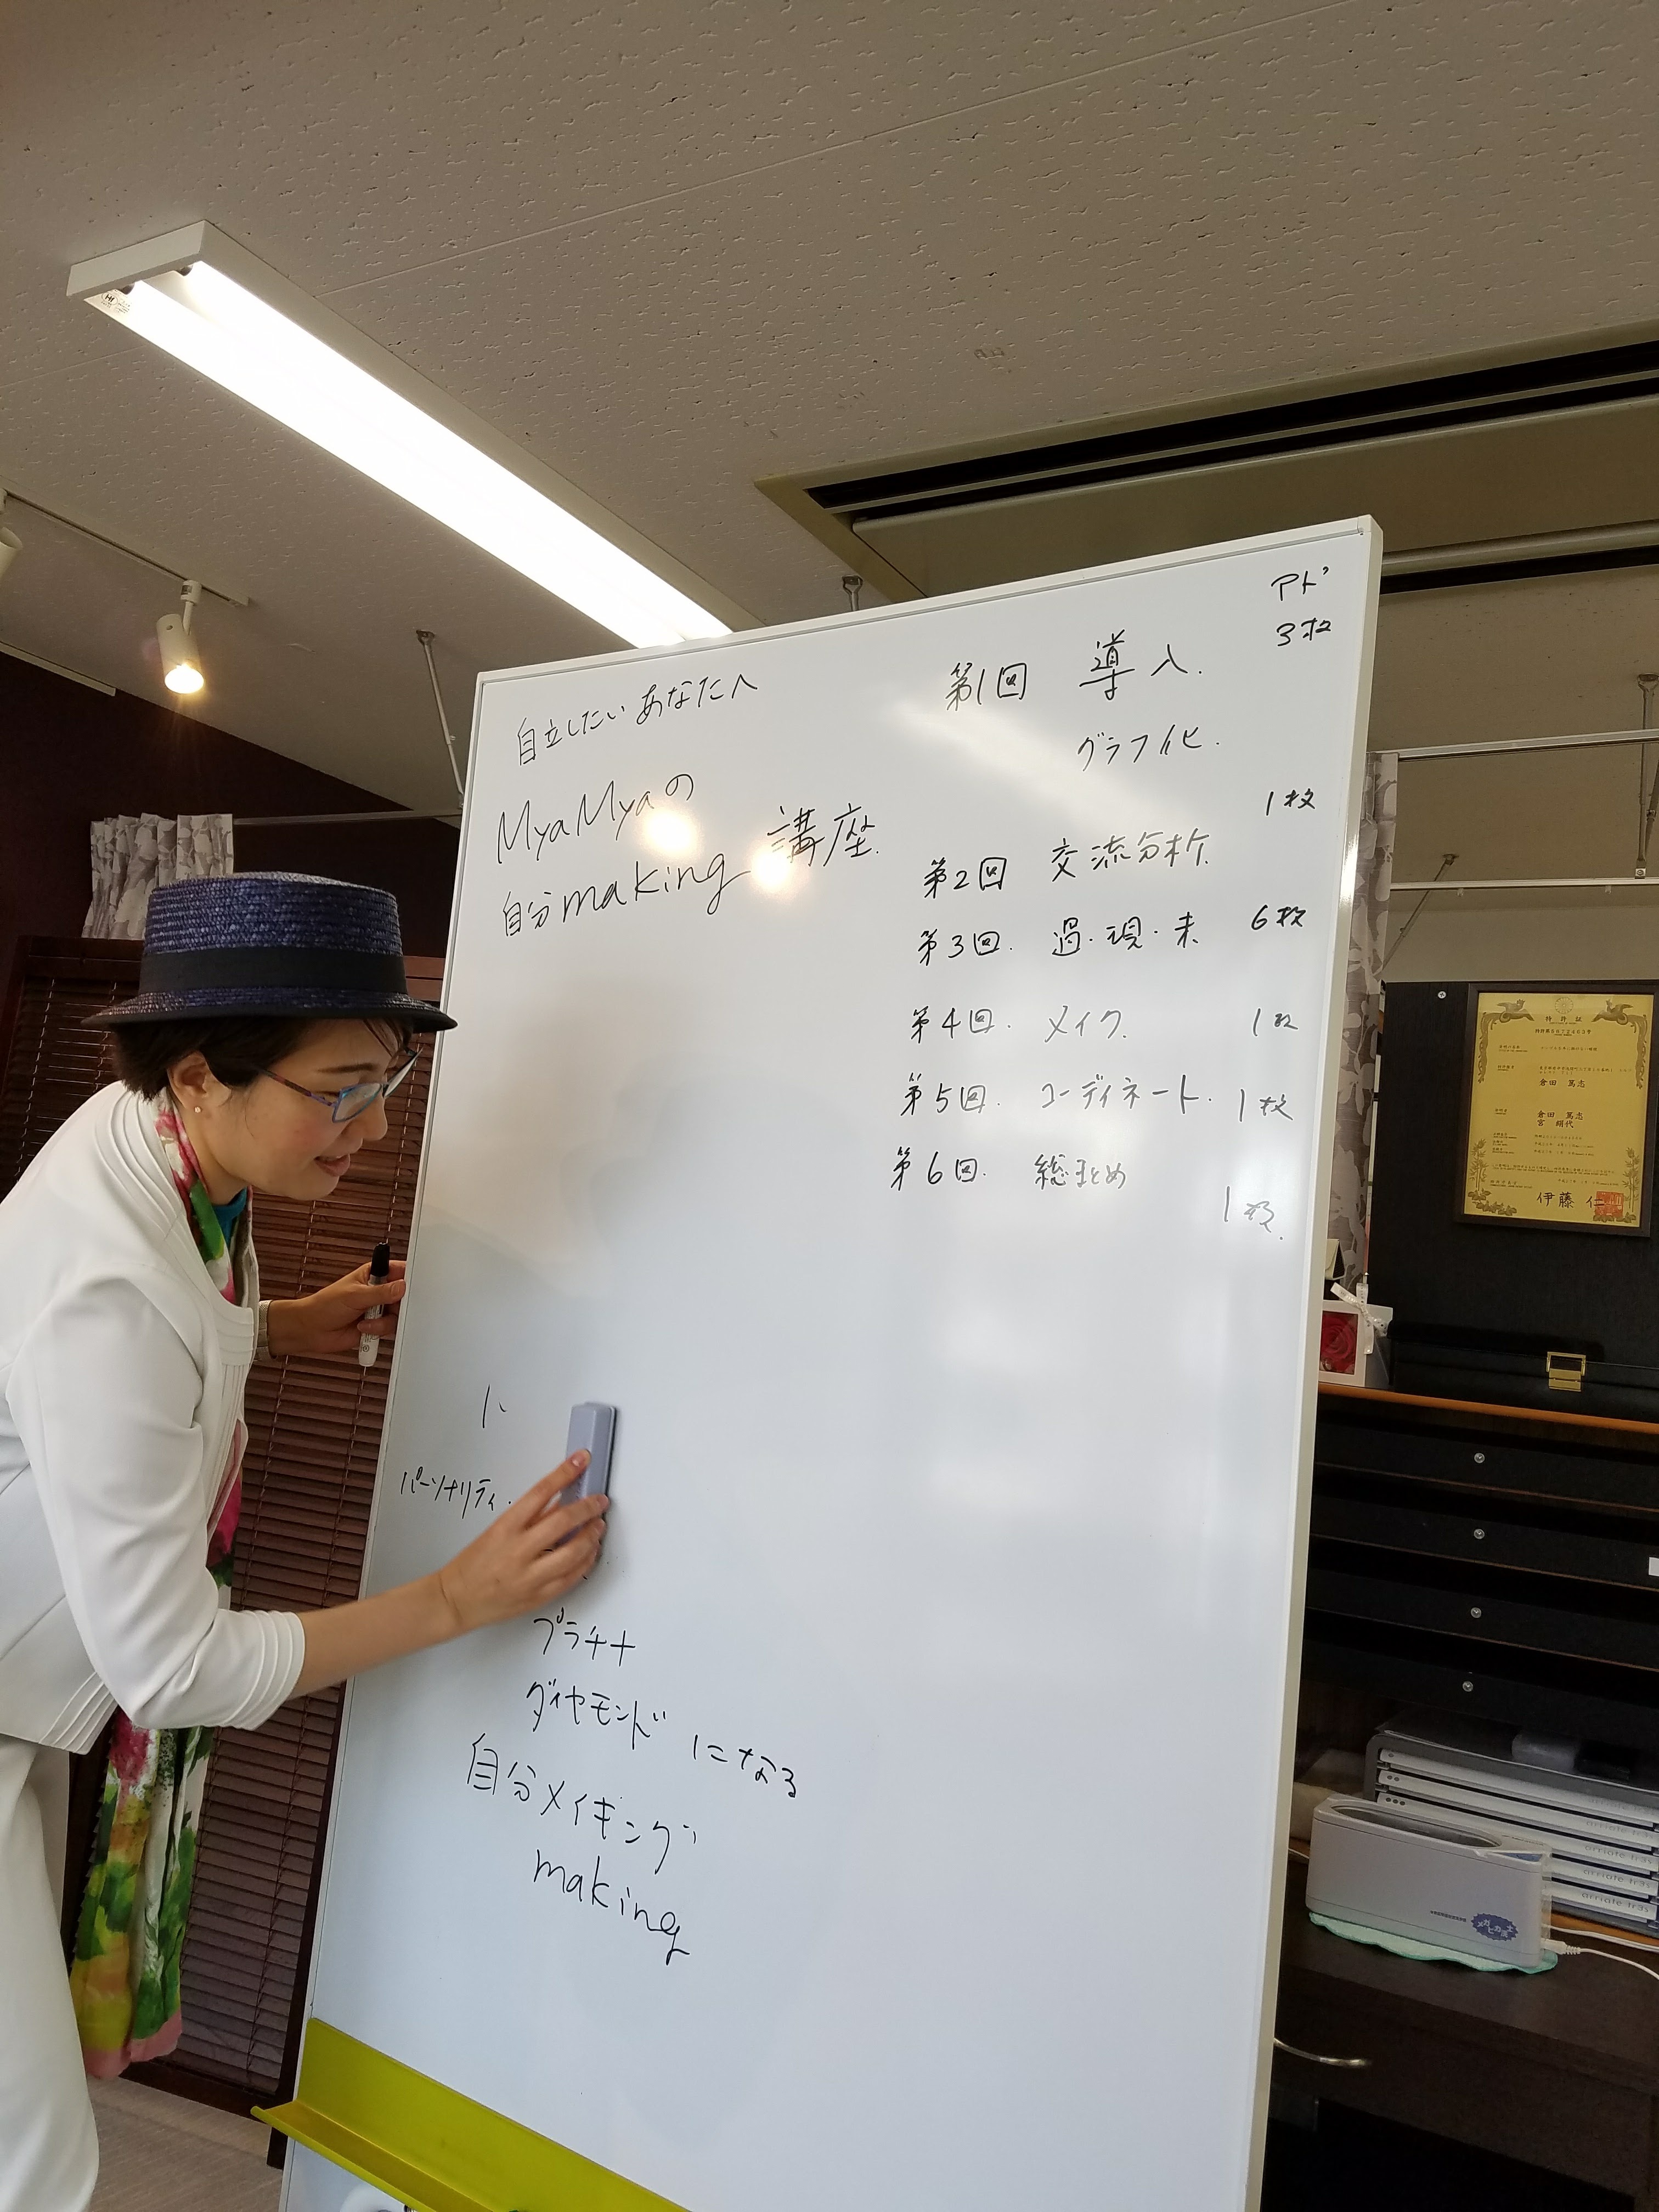 自立したいあなたへ
MyaMyaの
自分making 講座.
アド
3枚
第1回 導入.
グラフ化.
1枚
第2回 交流分析
6枚
第3回. 過・現・未
第4回. メイク. 1枚
第5回. コーディネート. 1枚
第6回. 総まとめ
1枚.
パーソナリティ.
プラチナ
ダイヤモンドになる
自分メイキング
making
特許証
倉田 篤志
倉田 篤志
宮 絹代
伊藤 仁
arriate tr3s
arriate tr3s
arriate tr3s
arriate tr3s